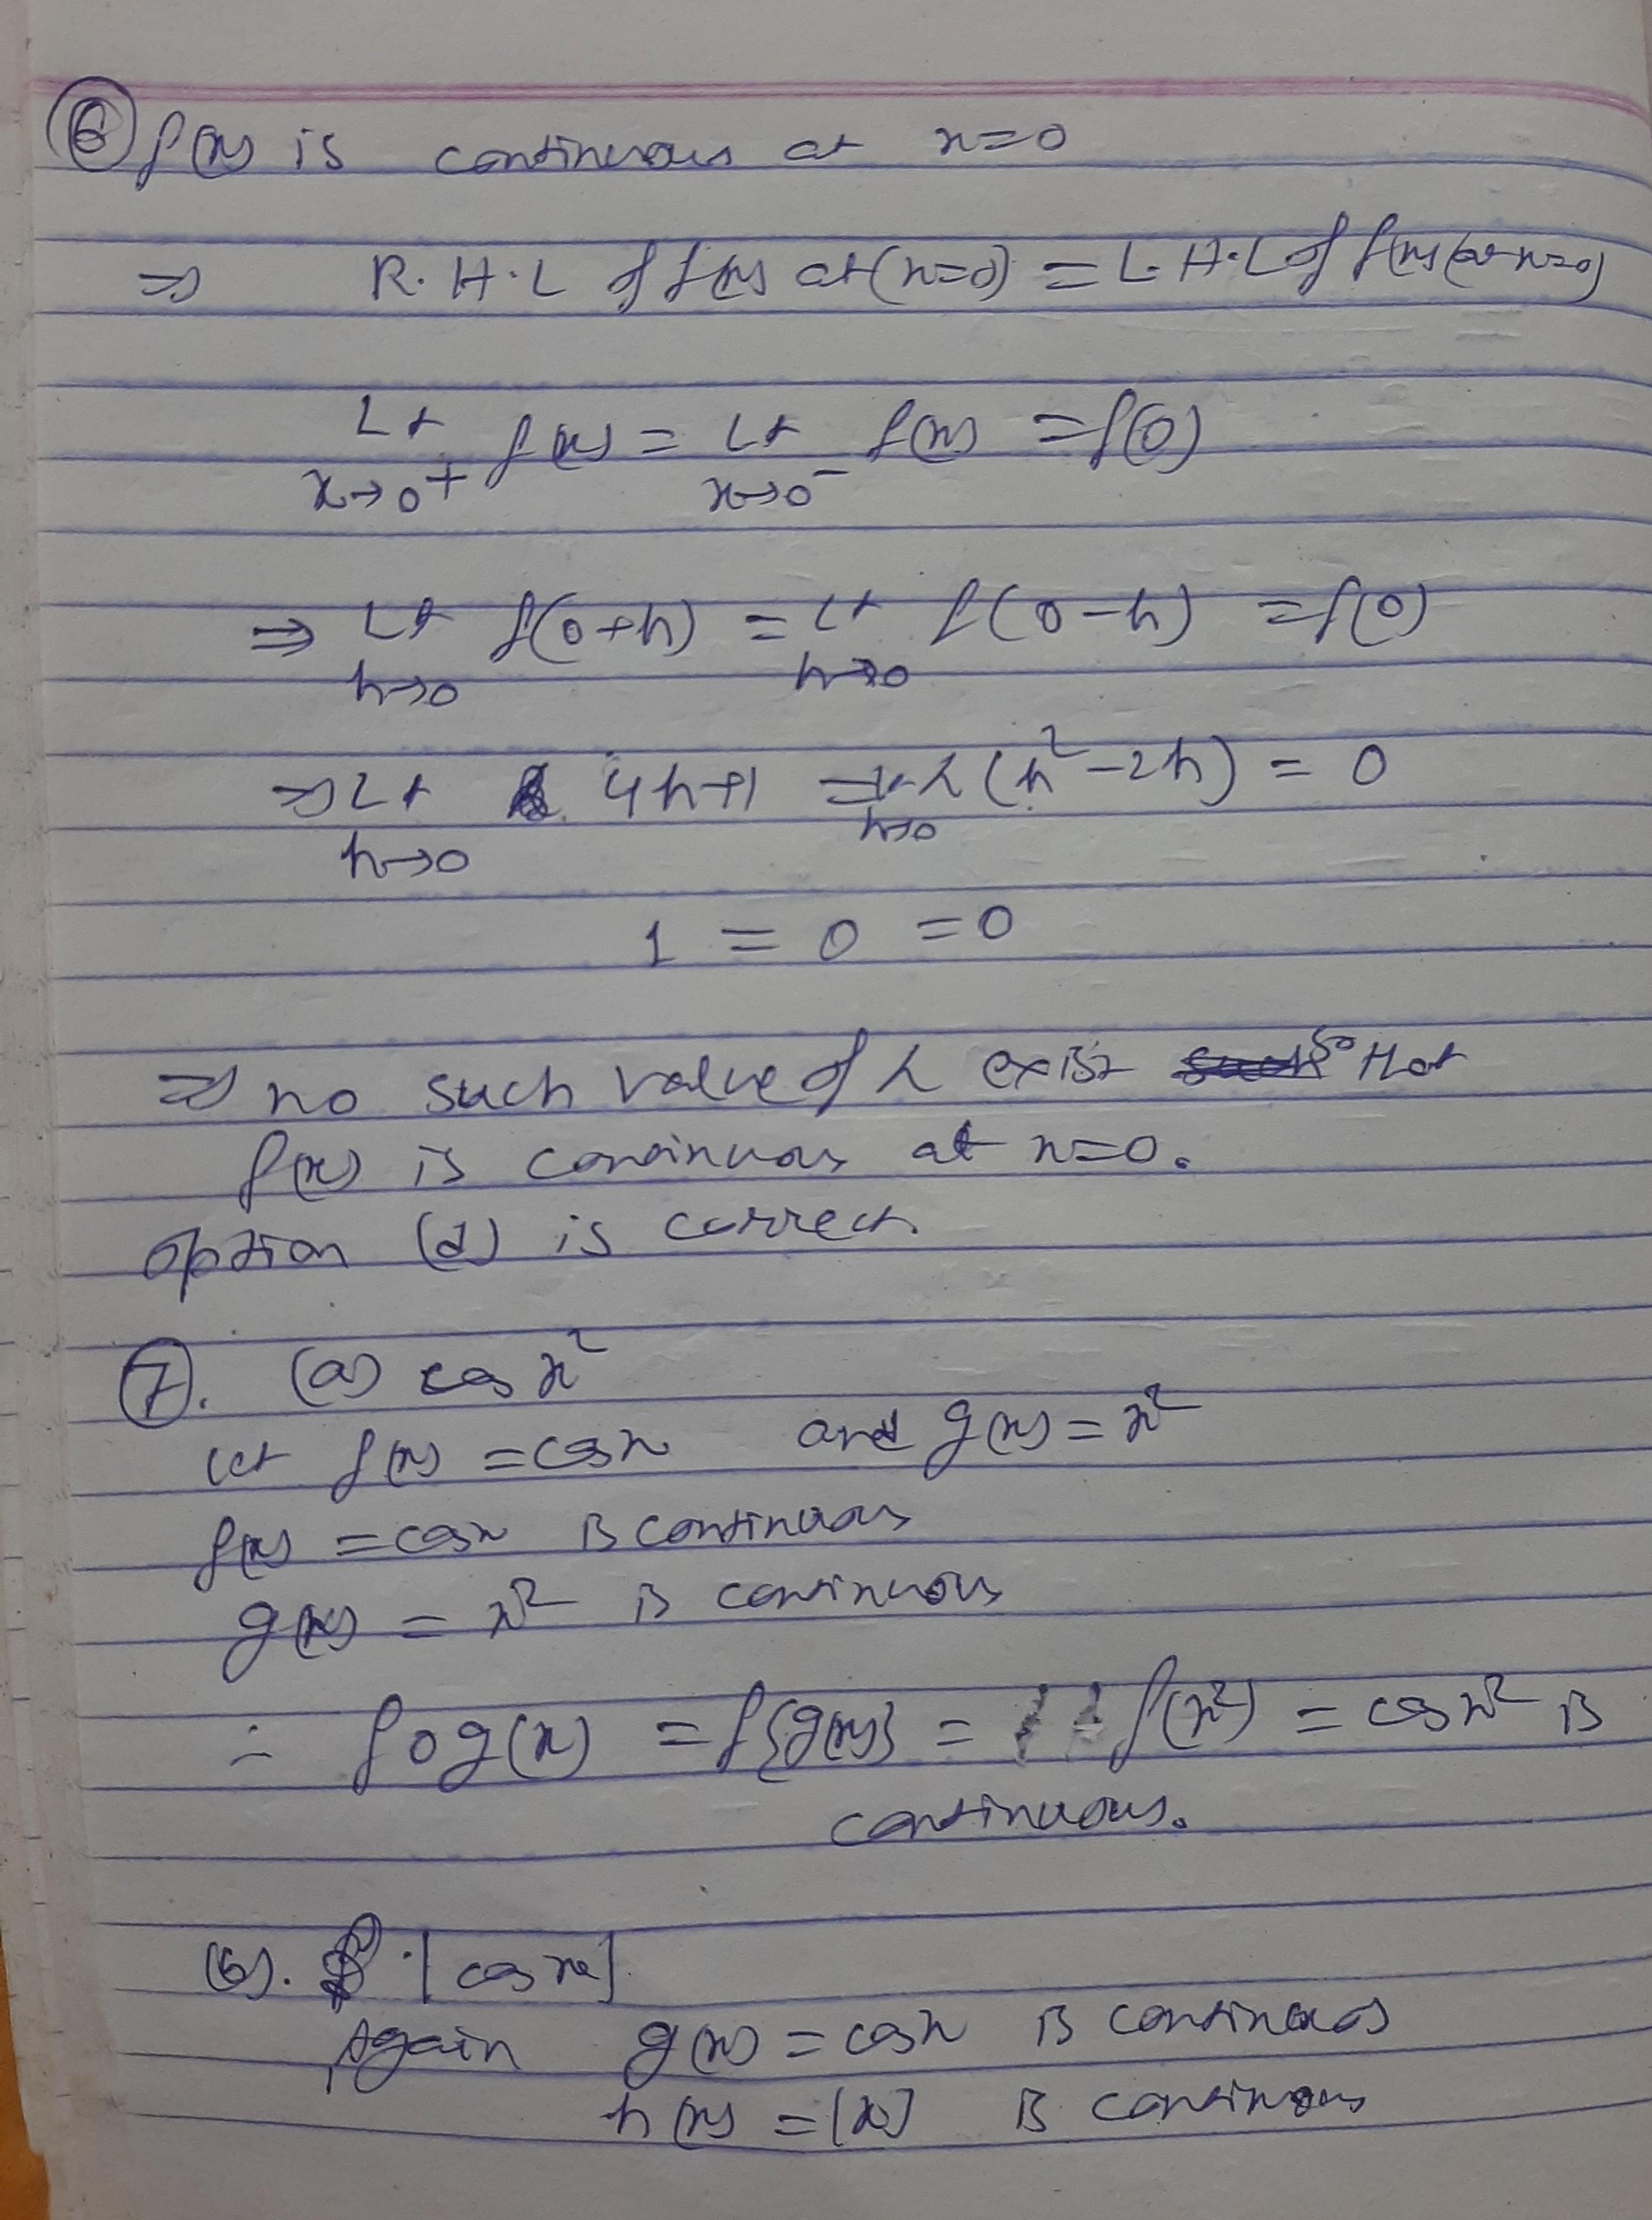 ⑥ f(x) is continuous at x=0
⇒ R.H.L of f(x) at (x=0) = L.H.L of f(x) (at x=0)
Lt f(x) = Lt f(x) = f(0)
x→0⁺ x→0⁻
⇒ Lt f(0+h) = Lt f(0-h) = f(0)
h→0 h→0
⇒ Lt 4h+1 = Lt λ(h²-2h) = 0
h→0 h→0
1 = 0 = 0
⇒ no such value of λ exist so that
f(x) is continuous at x=0.
option (d) is correct.
⑦. (a) cos x²
let f(x) = cosx and g(x) = x²
f(x) = cosx is continuous
g(x) = x² is continuous
∴ fog(x) = f{g(x)} = f(x²) = cosx² is
continuous.
(b). |cosx|
Again g(x) = cosx is continuous
h(x) = |x| is continuous